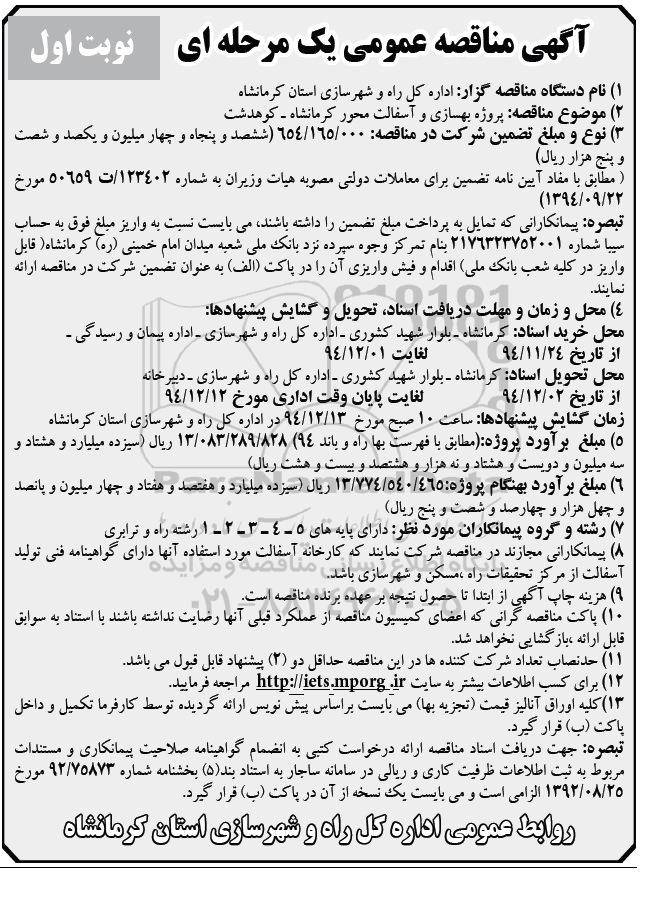 آگهی مناقصه عمومی یک مرحله ای
نوبت اول
۱) نام دستگاه مناقصه گزار: اداره کل راه و شهرسازی استان کرمانشاه
۲) موضوع مناقصه: پروژه بهسازی و آسفالت محور کرمانشاه ـ کوهدشت
۳) نوع و مبلغ تضمین شرکت در مناقصه: ۶۵۴/۱۶۵/۰۰۰ (ششصد و پنجاه و چهار میلیون و یکصد و شصت
و پنج هزار ریال)
( مطابق با مفاد آیین نامه تضمین برای معاملات دولتی مصوبه هیات وزیران به شماره ۱۲۳۴۰۲/ت ۵۰۶۵۹ مورخ
۱۳۹۴/۰۹/۲۲)
تبصره: پیمانکارانی که تمایل به پرداخت مبلغ تضمین را داشته باشند، می بایست نسبت به واریز مبلغ فوق به حساب
سیبا شماره ۲۱۷۶۳۲۳۷۵۲۰۰۱ بنام تمرکز وجوه سپرده نزد بانک ملی شعبه میدان امام خمینی (ره) کرمانشاه( قابل
واریز در کلیه شعب بانک ملی) اقدام و فیش واریزی آن را در پاکت (الف) به عنوان تضمین شرکت در مناقصه ارائه
نمایند.
۴) محل و زمان و مهلت دریافت اسناد، تحویل و گشایش پیشنهادها:
محل خرید اسناد: کرمانشاه ـ بلوار شهید کشوری ـ اداره کل راه و شهرسازی ـ اداره پیمان و رسیدگی ـ
از تاریخ ۹۴/۱۱/۲۴ لغایت ۹۴/۱۲/۰۱
محل تحویل اسناد: کرمانشاه ـ بلوار شهید کشوری ـ اداره کل راه و شهرسازی ـ دبیرخانه
از تاریخ ۹۴/۱۲/۰۲ لغایت پایان وقت اداری مورخ ۹۴/۱۲/۱۲
زمان گشایش پیشنهادها: ساعت ۱۰ صبح مورخ ۹۴/۱۲/۱۳ در اداره کل راه و شهرسازی استان کرمانشاه
۵) مبلغ برآورد پروژه:(مطابق با فهرست بها راه و باند ۹۴) ۱۳/۰۸۳/۲۸۹/۸۲۸ ریال (سیزده میلیارد و هشتاد و
سه میلیون و دویست و هشتاد و نه هزار و هشتصد و بیست و هشت ریال)
۶) مبلغ برآورد بهنگام پروژه:۱۳/۷۷۴/۵۴۰/۴۶۵ ریال (سیزده میلیارد و هفتصد و هفتاد و چهار میلیون و پانصد
و چهل هزار و چهارصد و شصت و پنج ریال)
۷) رشته و گروه پیمانکاران مورد نظر: دارای پایه های ۵ ـ ۴ ـ ۳ ـ ۲ ـ ۱ رشته راه و ترابری
۸) پیمانکارانی مجازند در مناقصه شرکت نمایند که کارخانه آسفالت مورد استفاده آنها دارای گواهینامه فنی تولید
آسفالت از مرکز تحقیقات راه ،مسکن و شهرسازی باشد.
۹) هزینه چاپ آگهی از ابتدا تا حصول نتیجه بر عهده برنده مناقصه است.
۱۰) پاکت مناقصه گرانی که اعضای کمیسیون مناقصه از عملکرد قبلی آنها رضایت نداشته باشند با استناد به سوابق
قابل ارائه ،بازگشایی نخواهد شد.
۱۱) حدنصاب تعداد شرکت کننده ها در این مناقصه حداقل دو (۲) پیشنهاد قابل قبول می باشد.
۱۲) برای کسب اطلاعات بیشتر به سایت http://iets.mporg .ir مراجعه فرمایید.
۱۳)کلیه اوراق آنالیز قیمت (تجزیه بها) می بایست براساس پیش نویس ارائه گردیده توسط کارفرما تکمیل و داخل
پاکت (ب) قرار گیرد.
تبصره: جهت دریافت اسناد مناقصه ارائه درخواست کتبی به انضمام گواهینامه صلاحیت پیمانکاری و مستندات
مربوط به ثبت اطلاعات ظرفیت کاری و ریالی در سامانه ساجار به استناد بند(۵) بخشنامه شماره ۹۲/۷۵۸۷۳ مورخ
۱۳۹۲/۰۸/۲۵ الزامی است و می بایست یک نسخه از آن در پاکت (ب) قرار گیرد.
روابط عمومی اداره کل راه و شهرسازی استان کرمانشاه